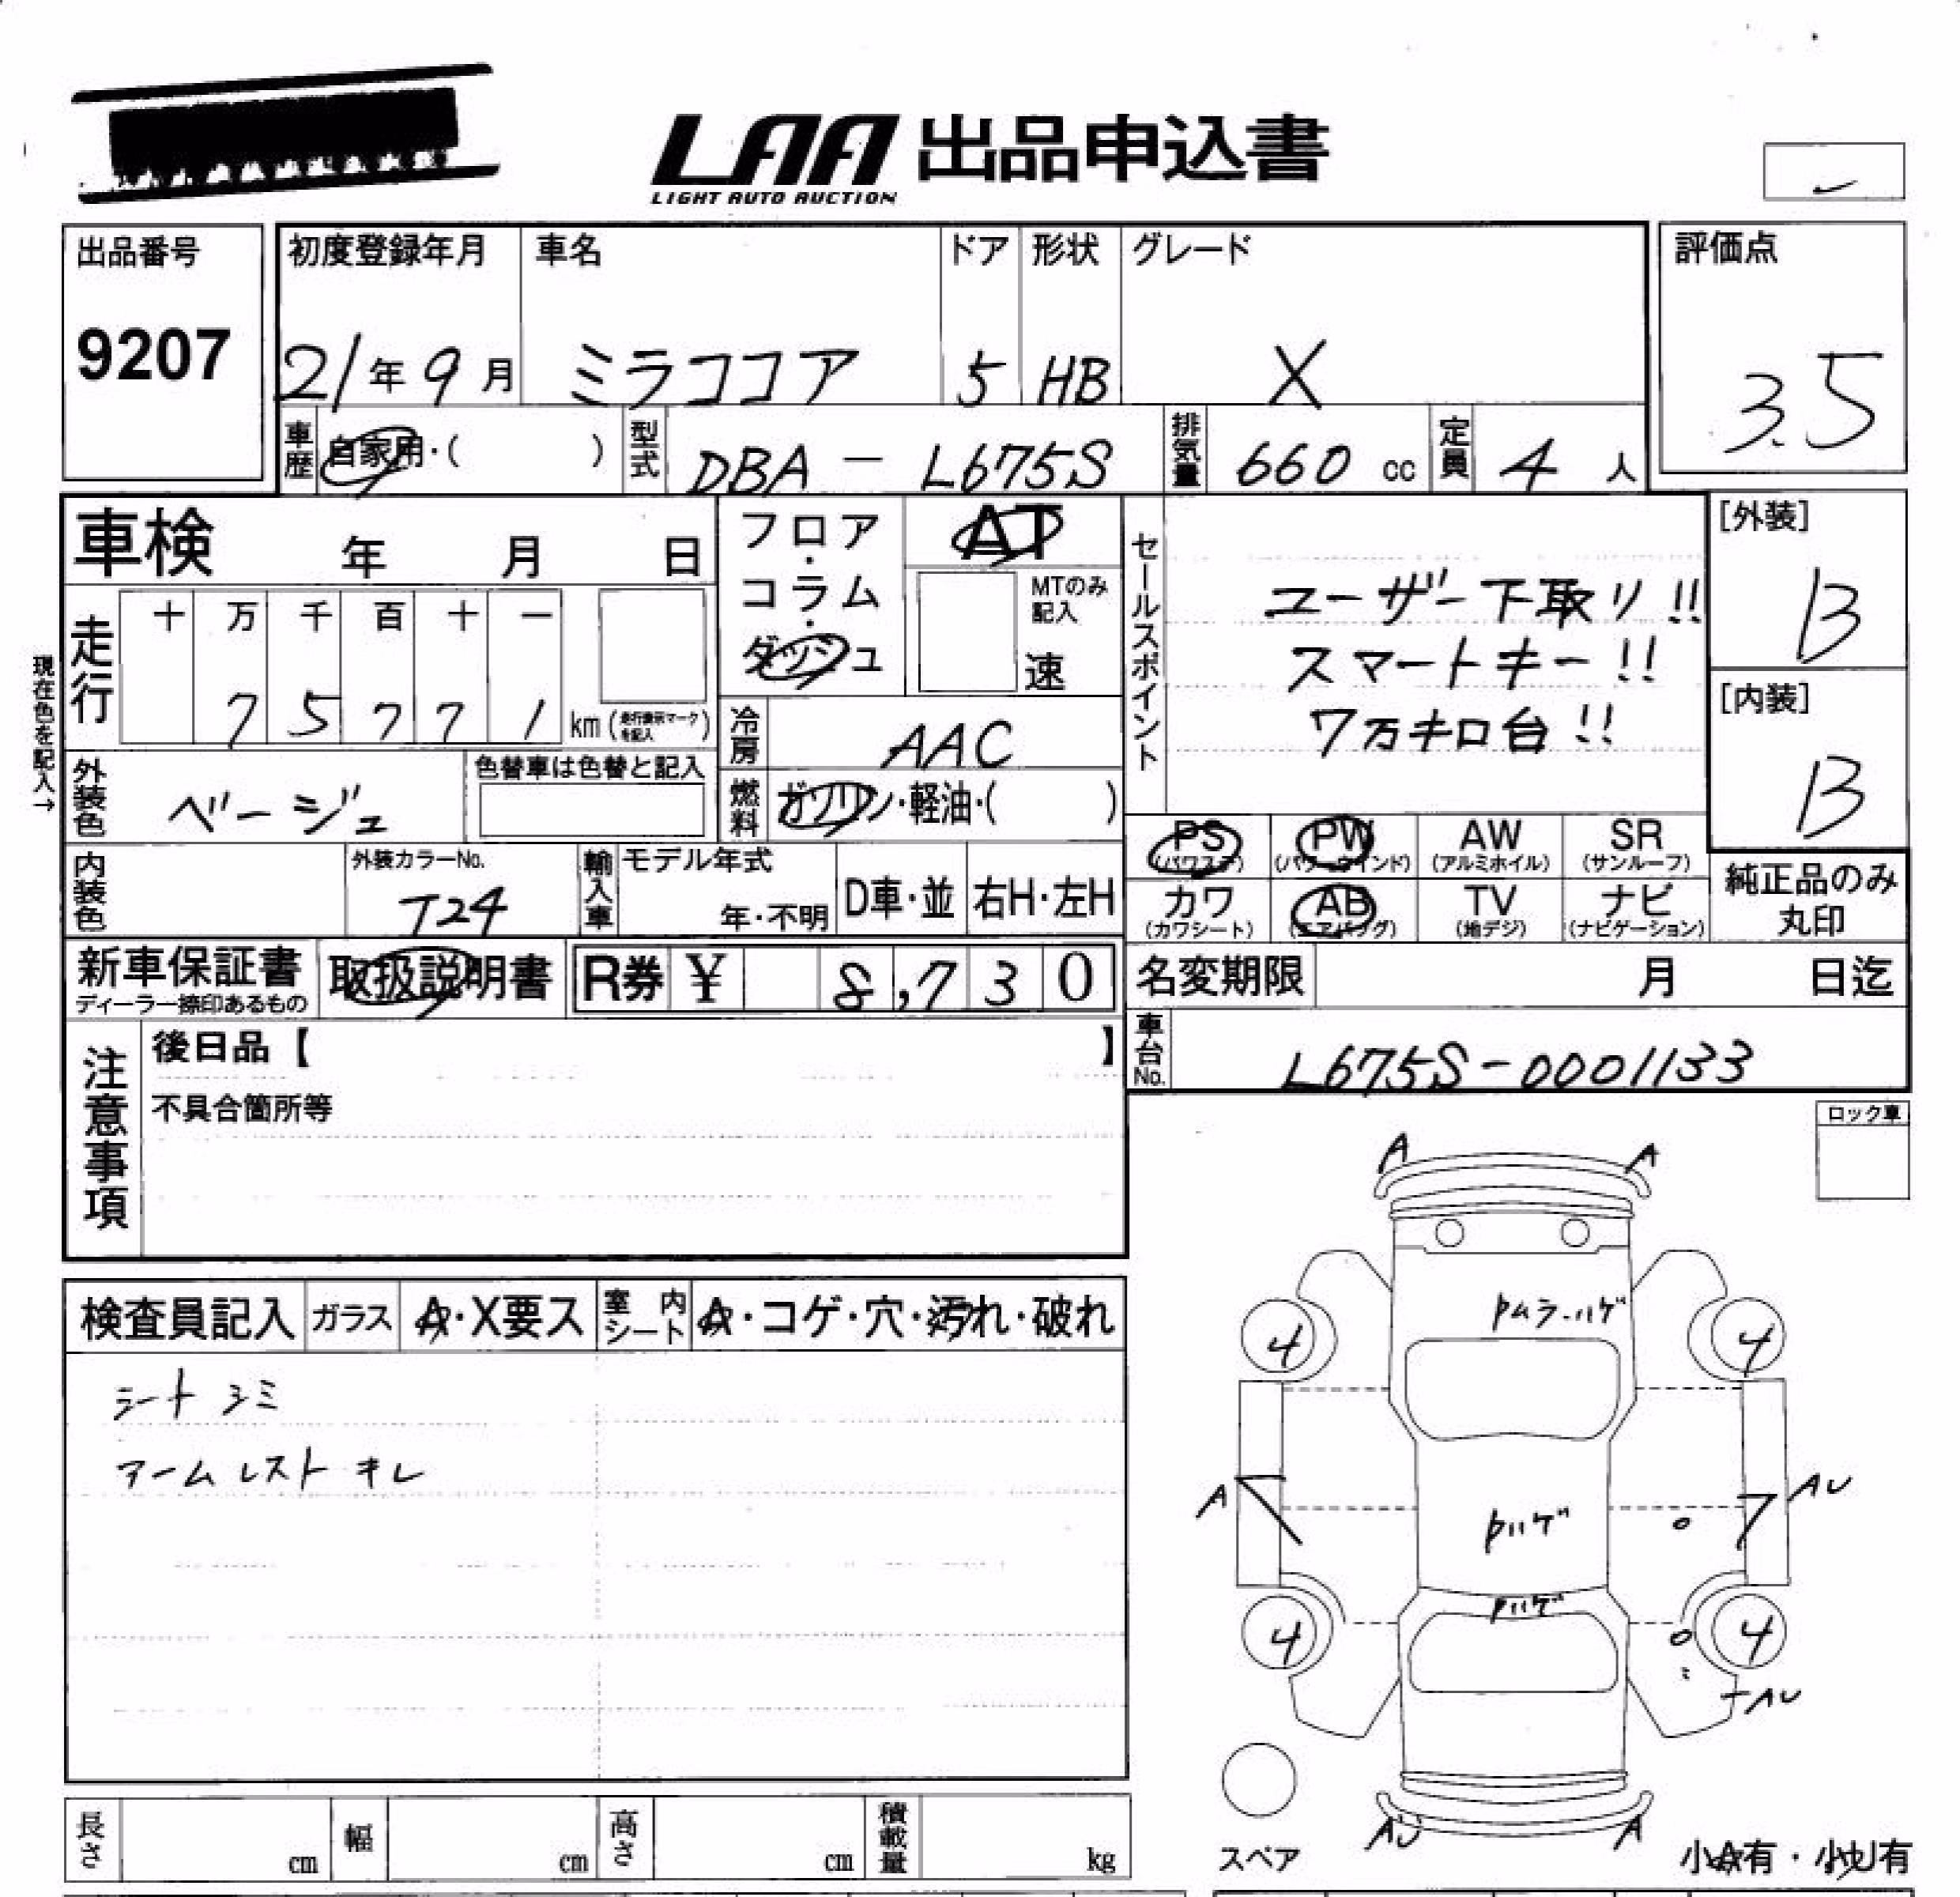 LAA 出品申込書
LIGHT AUTO AUCTION
出品番号
9207
初度登録年月 車名 ドア 形状 グレード
21年9月 ミラココア 5 HB X
評価点
3.5
車歴 自家用・( ) 型式 DBA-L675S 排気量 660 cc 定員 4 人
車検 年 月 日
フロア・コラム・ダッシュ
AT
MTのみ記入
速
セールスポイント
ユーザー下取り!!
スマートキー!!
7万キロ台!!
[外装]
B
[内装]
B
現在色を記入→
走行 十 万 千 百 十 一
7 5 7 7 1 km (走行表示マークを記入)
冷房 AAC
外装色 ベージュ 色替車は色替と記入
燃料 ガソリン・軽油・( )
PS (パワステ) PW (パワーウインド) AW (アルミホイル) SR (サンルーフ)
カワ (カワシート) AB (エアバッグ) TV (地デジ) ナビ (ナビゲーション)
純正品のみ丸印
内装色 外装カラーNo. T24 輸入車 モデル年式 年・不明 D車・並 右H・左H
新車保証書 ディーラー捺印あるもの 取扱説明書 R券 ¥ 8,730
名変期限 月 日迄
車台No. L675S-0001133
注意事項
後日品【 】
不具合箇所等
ロック車
検査員記入 ガラス A・X要ス 室内シート A・コゲ・穴・汚れ・破れ
シート シミ
アームレスト キレ
A A
Pムラ・ハゲ
4 4
A Pハゲ AU
Pハゲ
4 4
AU
AU A
スペア
小A有・小U有
長さ cm 幅 cm 高さ cm 積載量 kg